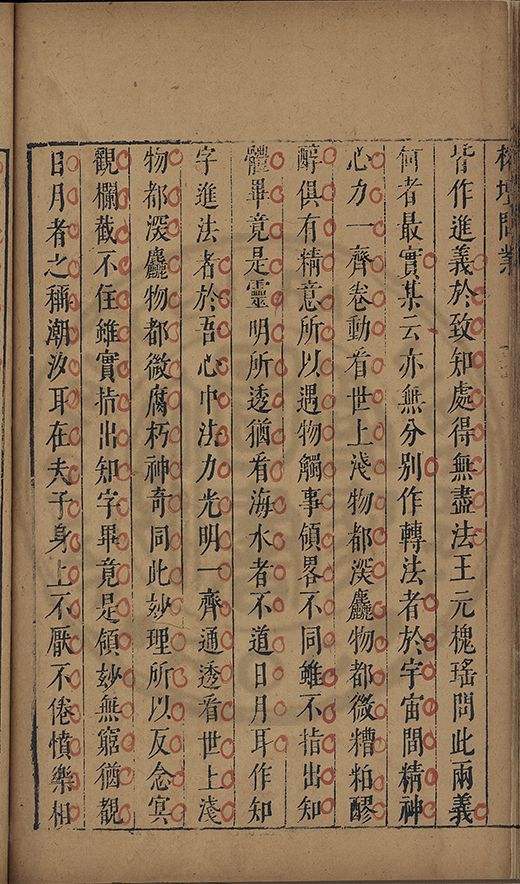 榕壇問業
皆作進義於致知處得無盡法王元槐瑤問此兩義
何者最實某云亦無分别作轉法者於宇宙間精神
心力一齊卷動看世上淺物都深麤物都微糟粕醪
醇俱有精意所以遇物觸事領畧不同雖不指出知
體畢竟是靈明所透猶看海水者不道日月耳作知
字進法者於吾心中法力光明一齊通透看世上淺
物都深麤物都微腐朽神奇同此妙理所以反念㝠
觀攔截不住雖實指出知字畢竟是領妙無窮猶觀
日月者之稱潮汐耳在夫子身上不厭不倦憤樂相